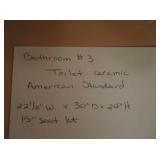 Bathroom #3
Toilet ceramic
American Standard
22 1/2" W x 30" D x 29" H
15" seat ht